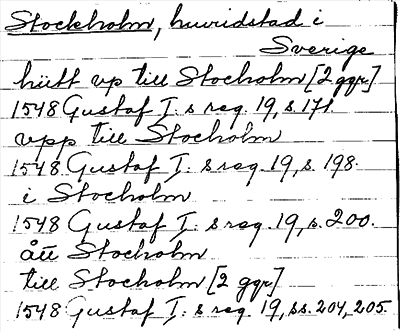 Stockholm, huvudstad i
Sverige
hütt vp till Stocholm [2 ggr]
1548 Gustaf I: s reg. 19, s. 171.
vpp till Stocholm
1548 Gustaf I: s reg. 19, s. 198.
i Stocholm
1548 Gustaf I: s reg. 19, s. 200.
ått Stocholm
till Stocholm [2 ggr]
1548 Gustaf I: s reg. 19, ss. 204, 205.